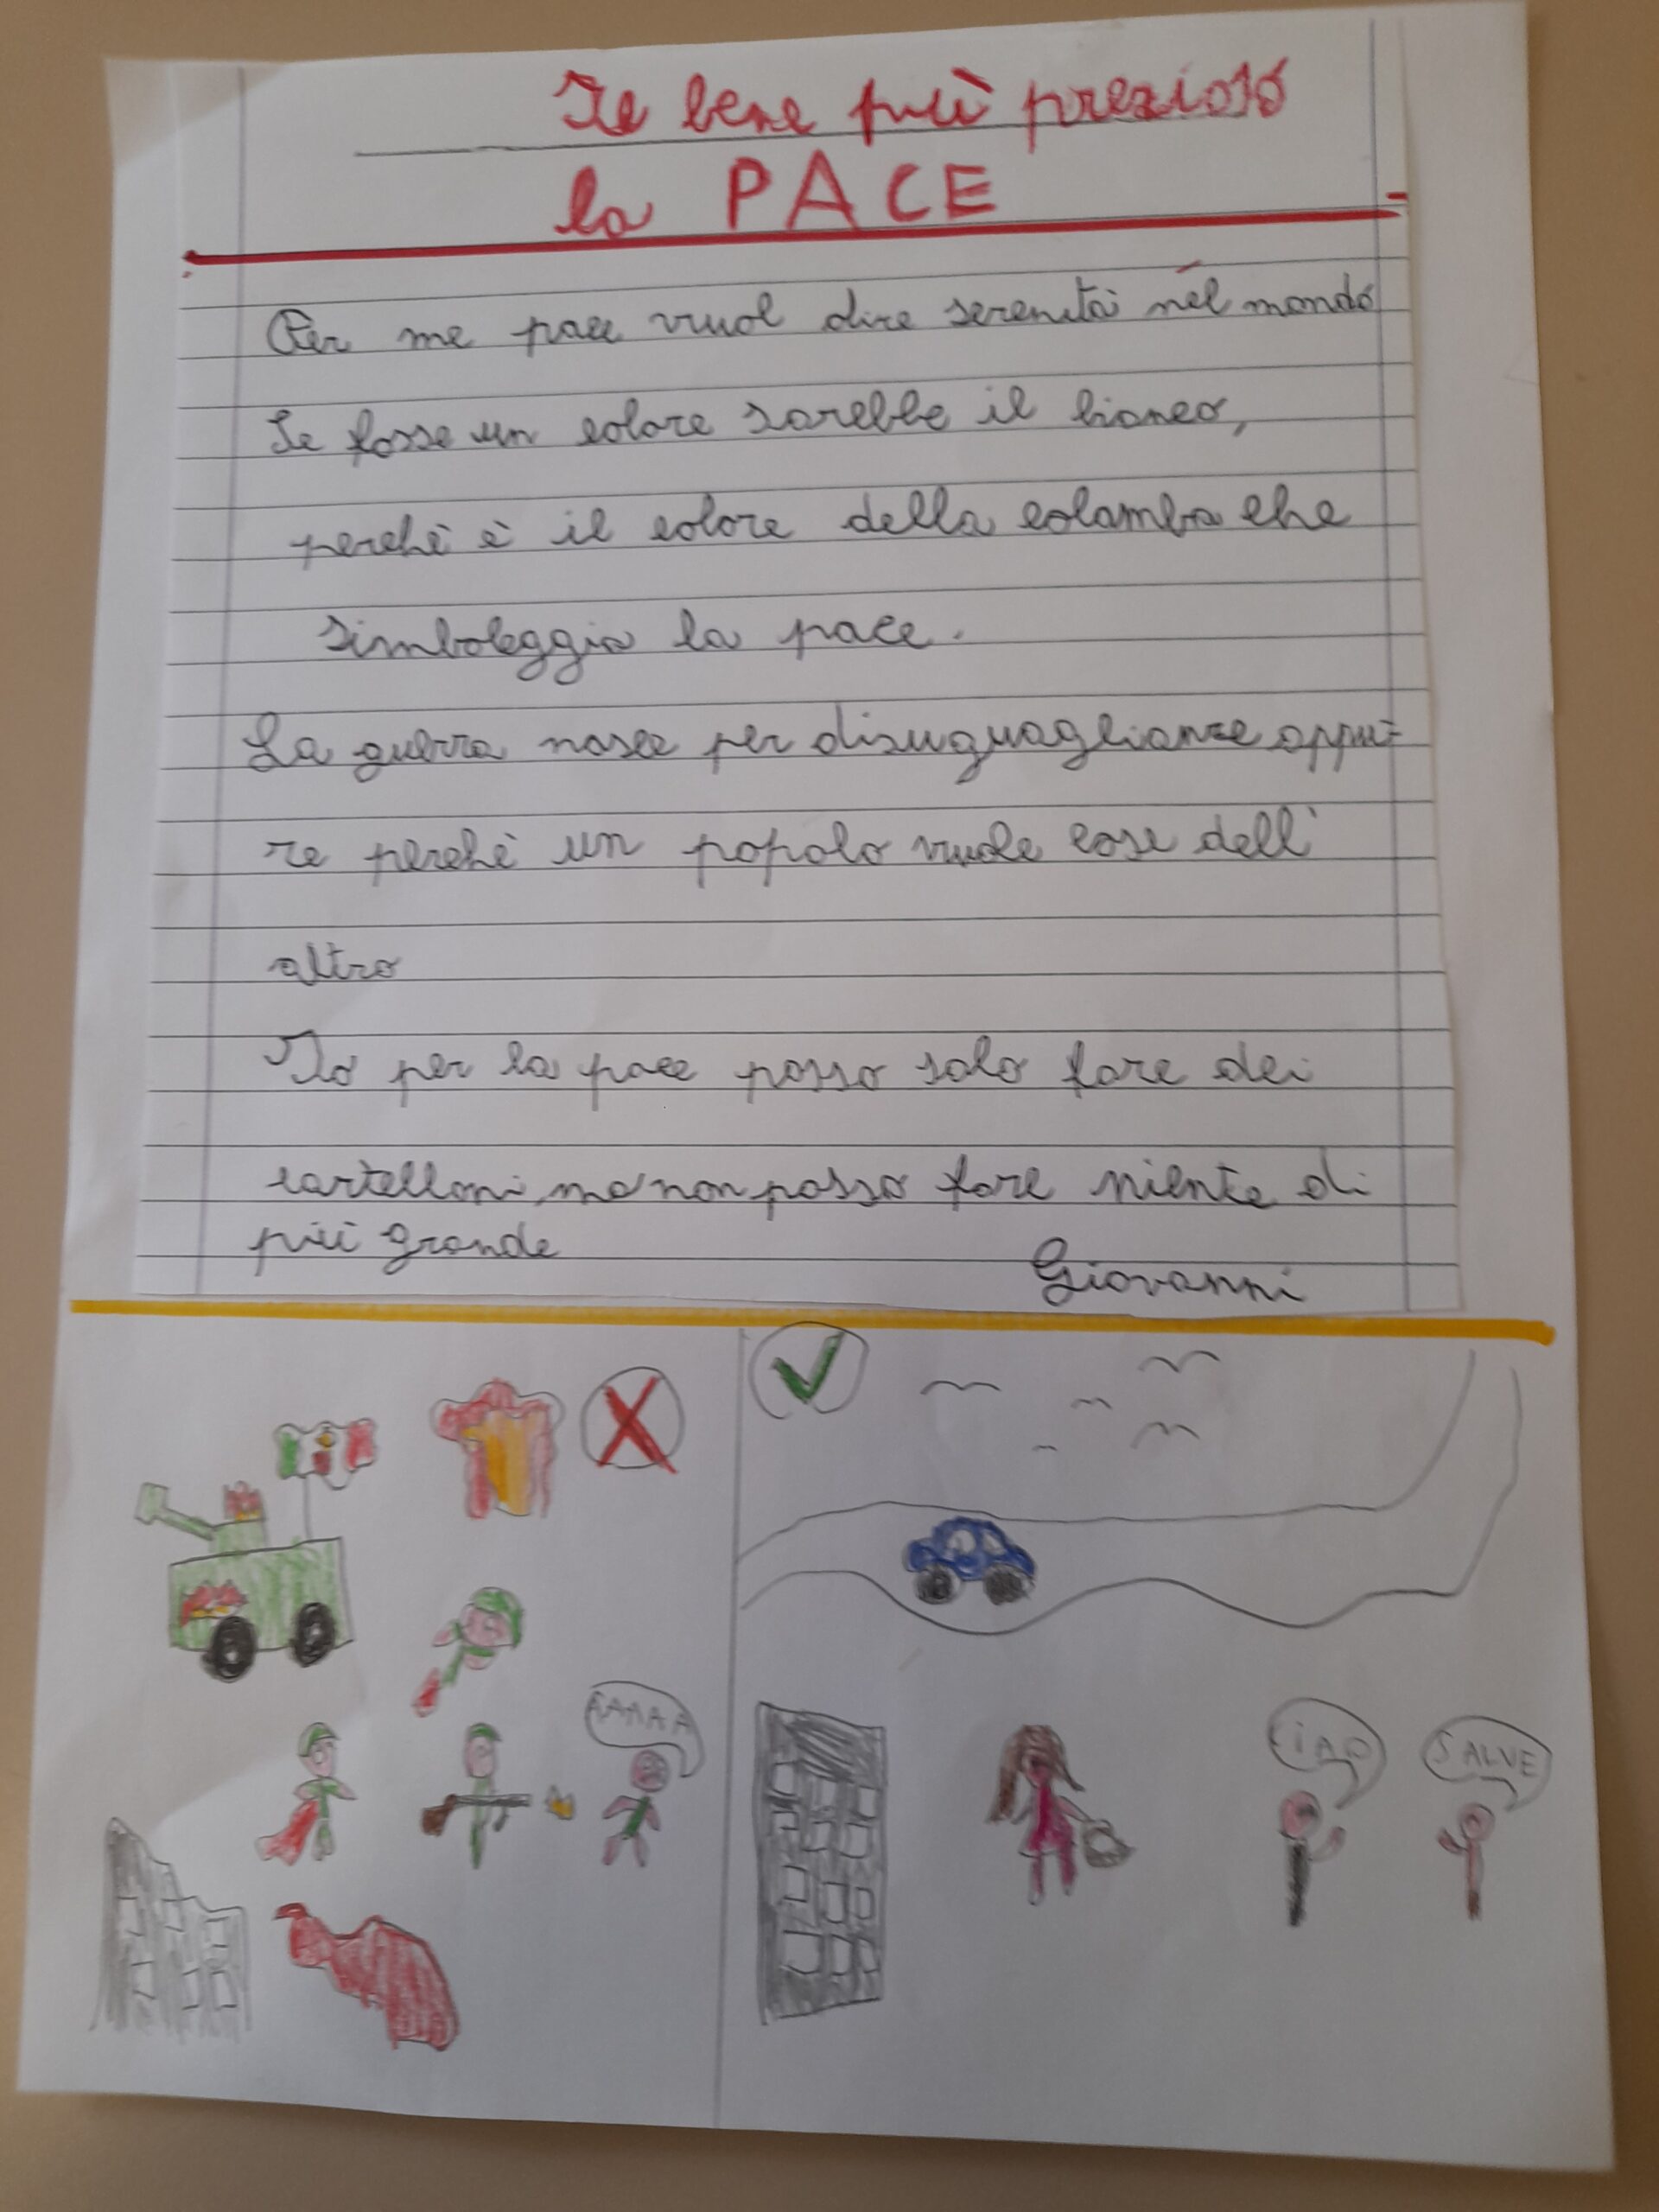 Il bene più prezioso
la PACE
Per me pace vuol dire serenità nel mondo
Se fosse un colore sarebbe il bianco,
perchè è il colore della colomba che
simboleggia la pace.
La guerra nasce per disuguaglianze oppu-
re perchè un popolo vuole cose dell'
altro
Io per la pace posso solo fare dei
cartelloni, ma non posso fare niente di
più grande
Giovanni
AAAAA
CIAO
SALVE